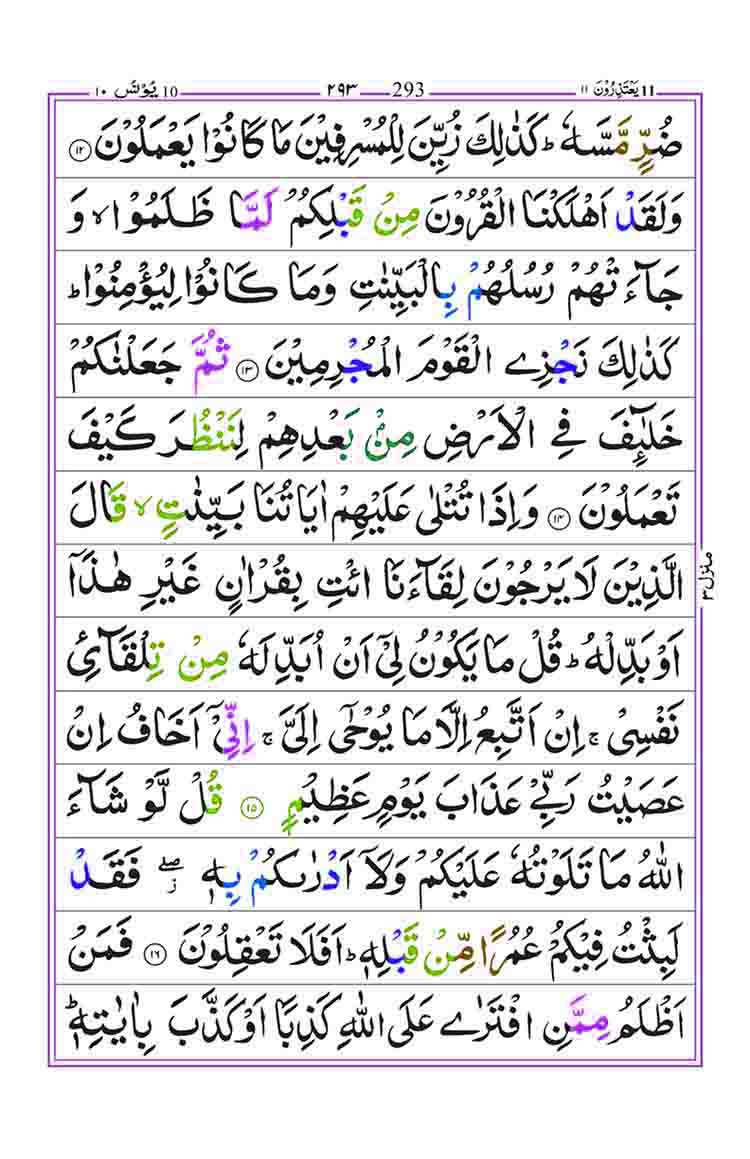 ١٠ يُوْنُس 10 ٢٩٣ 293 ١١ يَعْتَذِرُوْنَ 11
ضُرٍّ مَّسَّهٗ ؕ كَذٰلِكَ زُيِّنَ لِلْمُسْرِفِيْنَ مَا كَانُوْا يَعْمَلُوْنَ ۝١٢
وَلَقَدْ اَهْلَكْنَا الْقُرُوْنَ مِنْ قَبْلِكُمْ لَمَّا ظَلَمُوْا ۙ وَ
جَآءَتْهُمْ رُسُلُهُمْ بِالْبَيِّنٰتِ وَمَا كَانُوْا لِيُؤْمِنُوْا ؕ
كَذٰلِكَ نَجْزِي الْقَوْمَ الْمُجْرِمِيْنَ ۝١٣ ثُمَّ جَعَلْنٰكُمْ
خَلٰٓئِفَ فِي الْاَرْضِ مِنْۢ بَعْدِهِمْ لِنَنْظُرَ كَيْفَ
تَعْمَلُوْنَ ۝١٤ وَاِذَا تُتْلٰى عَلَيْهِمْ اٰيَاتُنَا بَيِّنٰتٍ ۙ قَالَ
الَّذِيْنَ لَا يَرْجُوْنَ لِقَآءَنَا ائْتِ بِقُرْاٰنٍ غَيْرِ هٰذَآ
اَوْ بَدِّلْهُ ؕ قُلْ مَا يَكُوْنُ لِيْٓ اَنْ اُبَدِّلَهٗ مِنْ تِلْقَآئِ
نَفْسِيْ ۚ اِنْ اَتَّبِعُ اِلَّا مَا يُوْحٰٓى اِلَيَّ ۚ اِنِّيْٓ اَخَافُ اِنْ
عَصَيْتُ رَبِّيْ عَذَابَ يَوْمٍ عَظِيْمٍ ۝١٥ قُلْ لَّوْ شَآءَ
اللّٰهُ مَا تَلَوْتُهٗ عَلَيْكُمْ وَلَآ اَدْرٰىكُمْ بِهٖ ۖؗ فَقَدْ
لَبِثْتُ فِيْكُمْ عُمُرًا مِّنْ قَبْلِهٖ ؕ اَفَلَا تَعْقِلُوْنَ ۝١٦ فَمَنْ
اَظْلَمُ مِمَّنِ افْتَرٰي عَلَى اللّٰهِ كَذِبًا اَوْ كَذَّبَ بِاٰيٰتِهٖ ؕ
منزل ٣